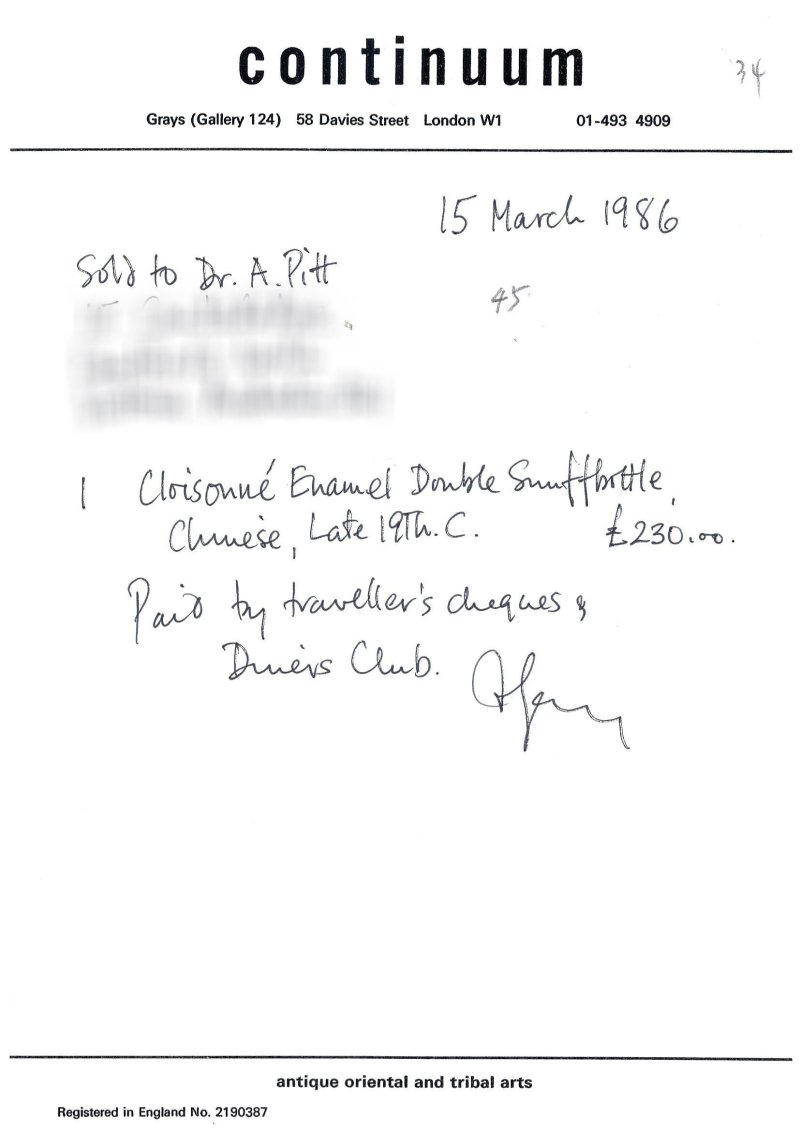 continuum
'34
Grays (Gallery 124) 58 Davies Street London W1 01-493 4909
15 March 1986
Sold to Dr. A. Pitt
45
1 Cloisonné Enamel Double Snuffbottle,
Chinese, Late 19Th. C. £230.00.
Paid by traveller's cheques &
Diners Club.
antique oriental and tribal arts
Registered in England No. 2190387